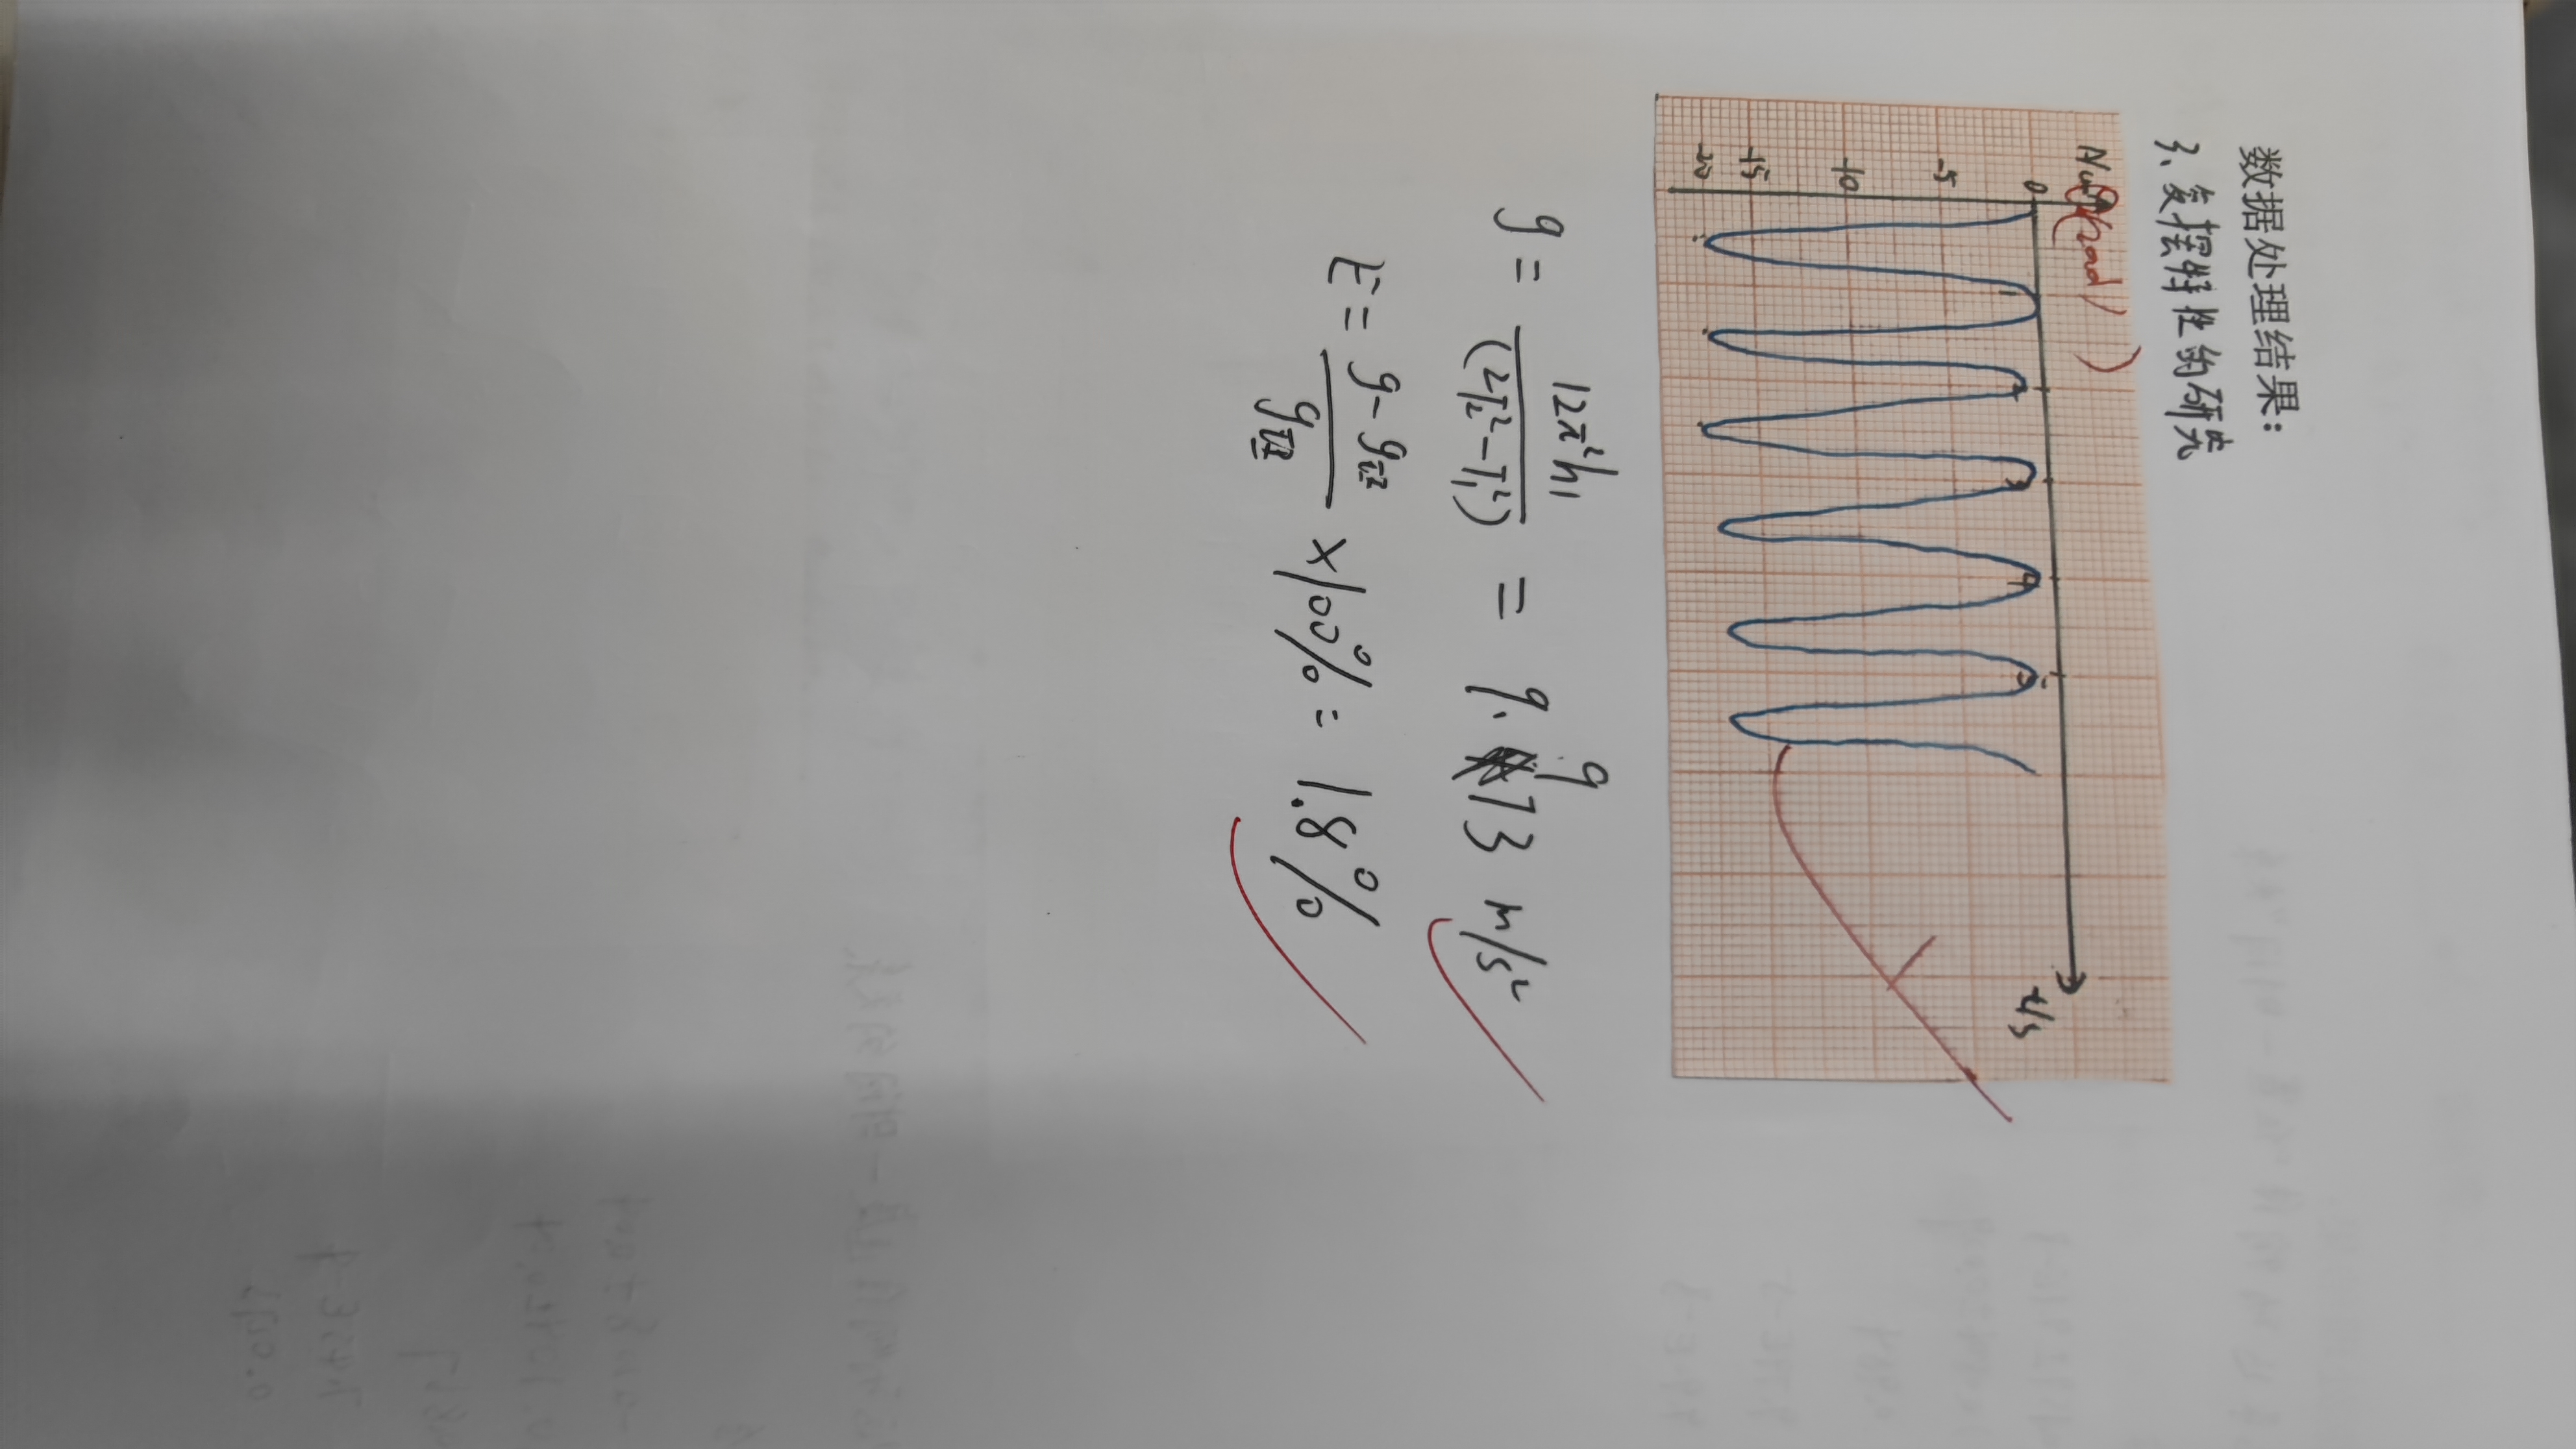 数据处理结果:
3、复摆特性的研究
θ(rad)
0
-5
-10
-15
-20
1
2
3
4
5
t/s
g = 12π²h₁ / (2T₂² - T₁²) = 9.973 m/s²
E = (g - g理) / g理 × 100% = 1.8%